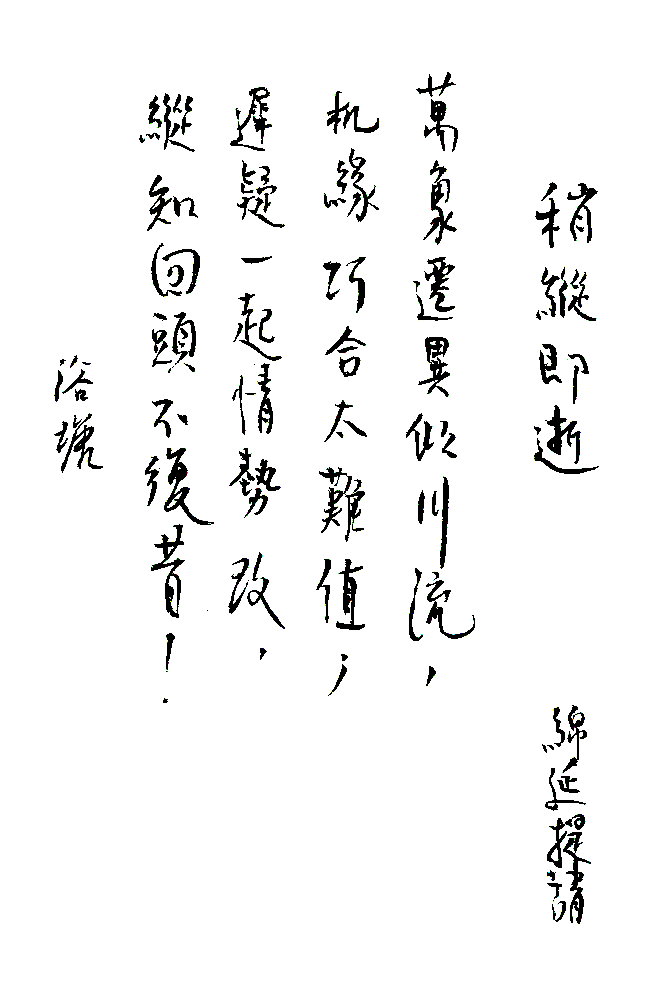 稍縱即逝
綿延提請
萬象遷異似川流，
机緣巧合太難值；
遲疑一起情勢改，
縱知回頭不復昔！
浴塘